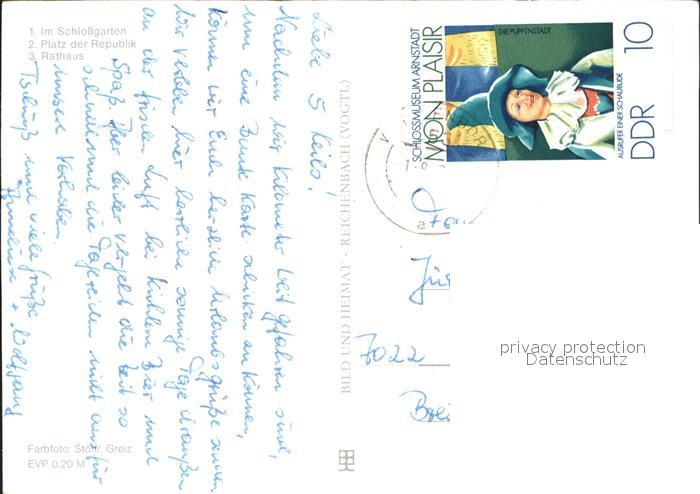 1. Im Schloßgarten
2. Platz der Republik
3. Rathaus
Liebe 5 Keils!
Nachdem wir Kilometer weit gefahren sind,
um eine Bunte Karte schicken zu können,
können wir Euch herzliche Urlaubsgrüße senden.
Wir verleben hier herrliche sonnige Tage draußen
an der frischen Luft bei kühlem Bier und
Spaß. Aber leider vergeht die Zeit so
schnell und die Tage reichen nicht aus für
unser Vorhaben.
Tschüß und viele Grüße
+ Wolfgang
Farbfoto: Stöhr, Greiz
EVP 0.20 M
BILD UND HEIMAT · REICHENBACH (VOGTL)
SCHLOSSMUSEUM ARNSTADT
MON PLAISIR
DIE PUPPENSTADT
AUSRUFER EINER SCHAUBUDE
DDR 10
7022
privacy protection
Datenschutz